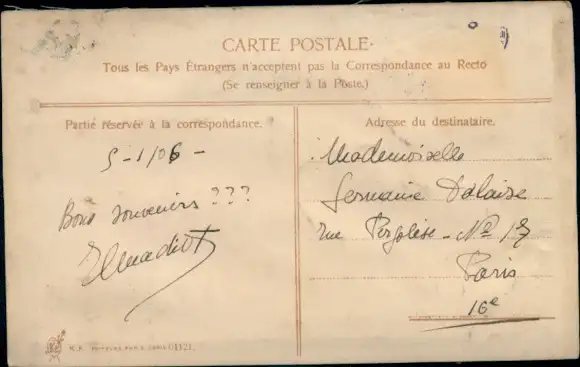 CARTE POSTALE
Tous les Pays Étrangers n'acceptent pas la Correspondance au Recto
(Se renseigner à la Poste.)
Partie réservée à la correspondance.
5-1/06-
Bons souvenirs ???
Adresse du destinataire.
Mademoiselle
Germaine Dalaise
rue Pergolèse - No
Paris
16e
01121.